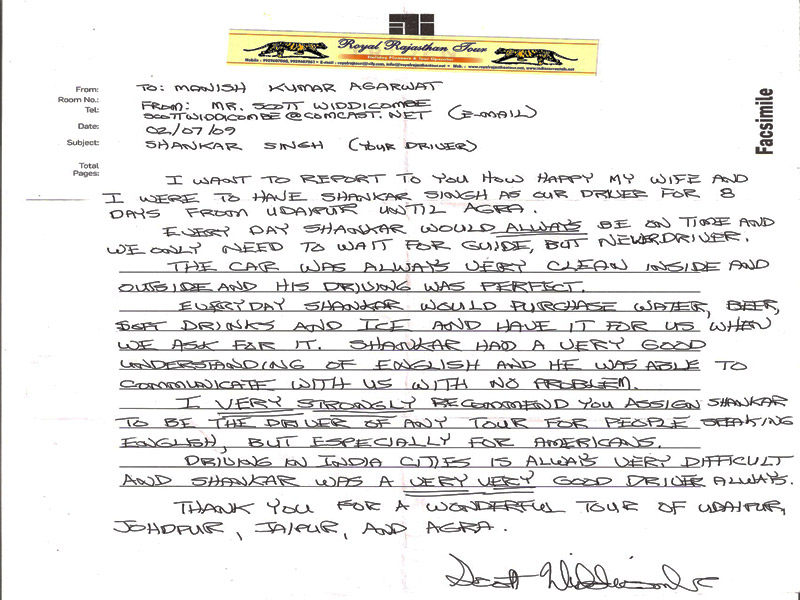 Royal Rajasthan Tour
Holiday Planners & Tour Operator
From: TO: MANISH KUMAR AGARWAT
Room No.: FROM: MR. SCOTT WIDDICOMBE
Tel: SCOTTWIDDICOMBE@COMCAST.NET (E-MAIL)
Date: 02/07/09
Subject: SHANKAR SINGH (YOUR DRIVER)
Total
Pages:
Facsimile
I WANT TO REPORT TO YOU HOW HAPPY MY WIFE AND
I WERE TO HAVE SHANKAR SINGH AS OUR DRIVER FOR 8
DAYS FROM UDAIPUR UNTIL AGRA.
EVERY DAY SHANKAR WOULD ALWAYS BE ON TIME AND
WE ONLY NEED TO WAIT FOR GUIDE, BUT NEVER DRIVER.
THE CAR WAS ALWAYS VERY CLEAN INSIDE AND
OUTSIDE AND HIS DRIVING WAS PERFECT.
EVERYDAY SHANKAR WOULD PURCHASE WATER, BEER,
SOFT DRINKS AND ICE AND HAVE IT FOR US WHEN
WE ASK FOR IT. SHANKAR HAD A VERY GOOD
UNDERSTANDING OF ENGLISH AND HE WAS ABLE TO
COMMUNICATE WITH US WITH NO PROBLEM.
I VERY STRONGLY RECOMMEND YOU ASSIGN SHANKAR
TO BE THE DRIVER OF ANY TOUR FOR PEOPLE SPEAKING
ENGLISH, BUT ESPECIALLY FOR AMERICANS.
DRIVING IN INDIA CITIES IS ALWAYS VERY DIFFICULT
AND SHANKAR WAS A VERY VERY GOOD DRIVER ALWAYS.
THANK YOU FOR A WONDERFUL TOUR OF UDAIPUR,
JOHDPUR, JAIPUR, AND AGRA.
Scott Widdicombe